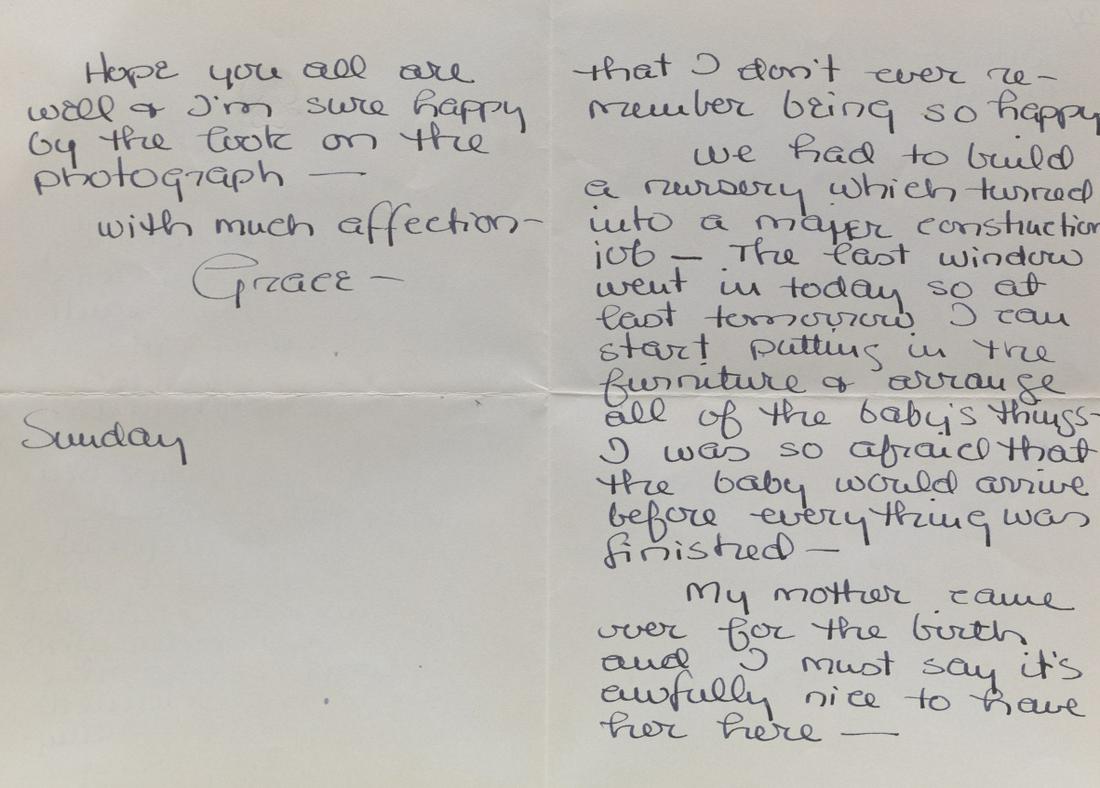 Hope you all are
well & I'm sure happy
by the look on the
photograph —
with much affection-
Grace —
Sunday
that I don't ever re-
member being so happy
We had to build
a nursery which turned
into a major construction
job — The last window
went in today so at
last tomorrow I can
start putting in the
furniture & arrange
all of the baby's things-
I was so afraid that
the baby would arrive
before everything was
finished —
My mother came
over for the birth
and I must say it's
awfully nice to have
her here —